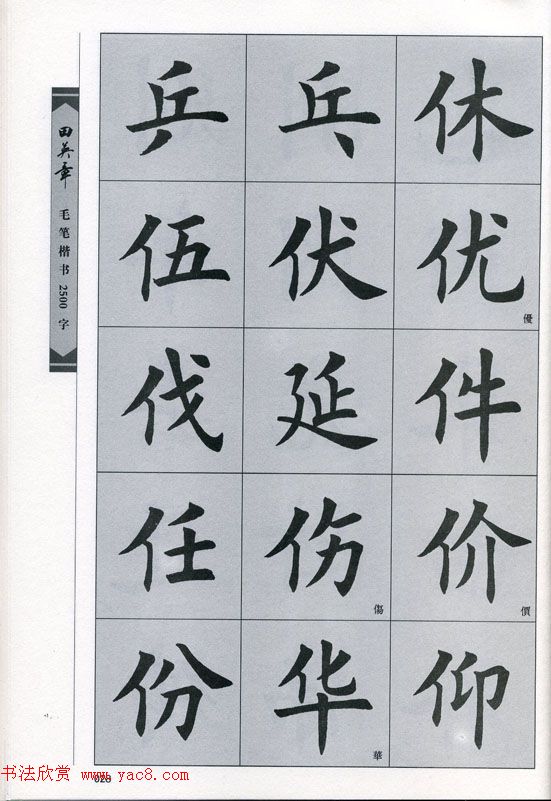 田英章
毛笔楷书2500字
乒 乓 休
伍 伏 优 優
伐 延 件
任 伤 傷 价 價
份 华 華 仰
书法欣赏 www.yac8.com